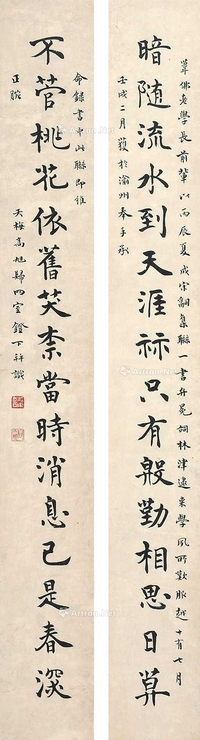 暗随流水到天涯祘只有殷勤相思日算
草佛老學長前輩以丙辰夏成宋詞集聯一書弁冕詞林津逮來學風所歎服越十有七月
壬戌二月獲於渝州奉手承
不管桃花依舊笑柰當時消息已是春深
命錄書中此聯即維
正腕
天梅高旭歸四室鐙下并識